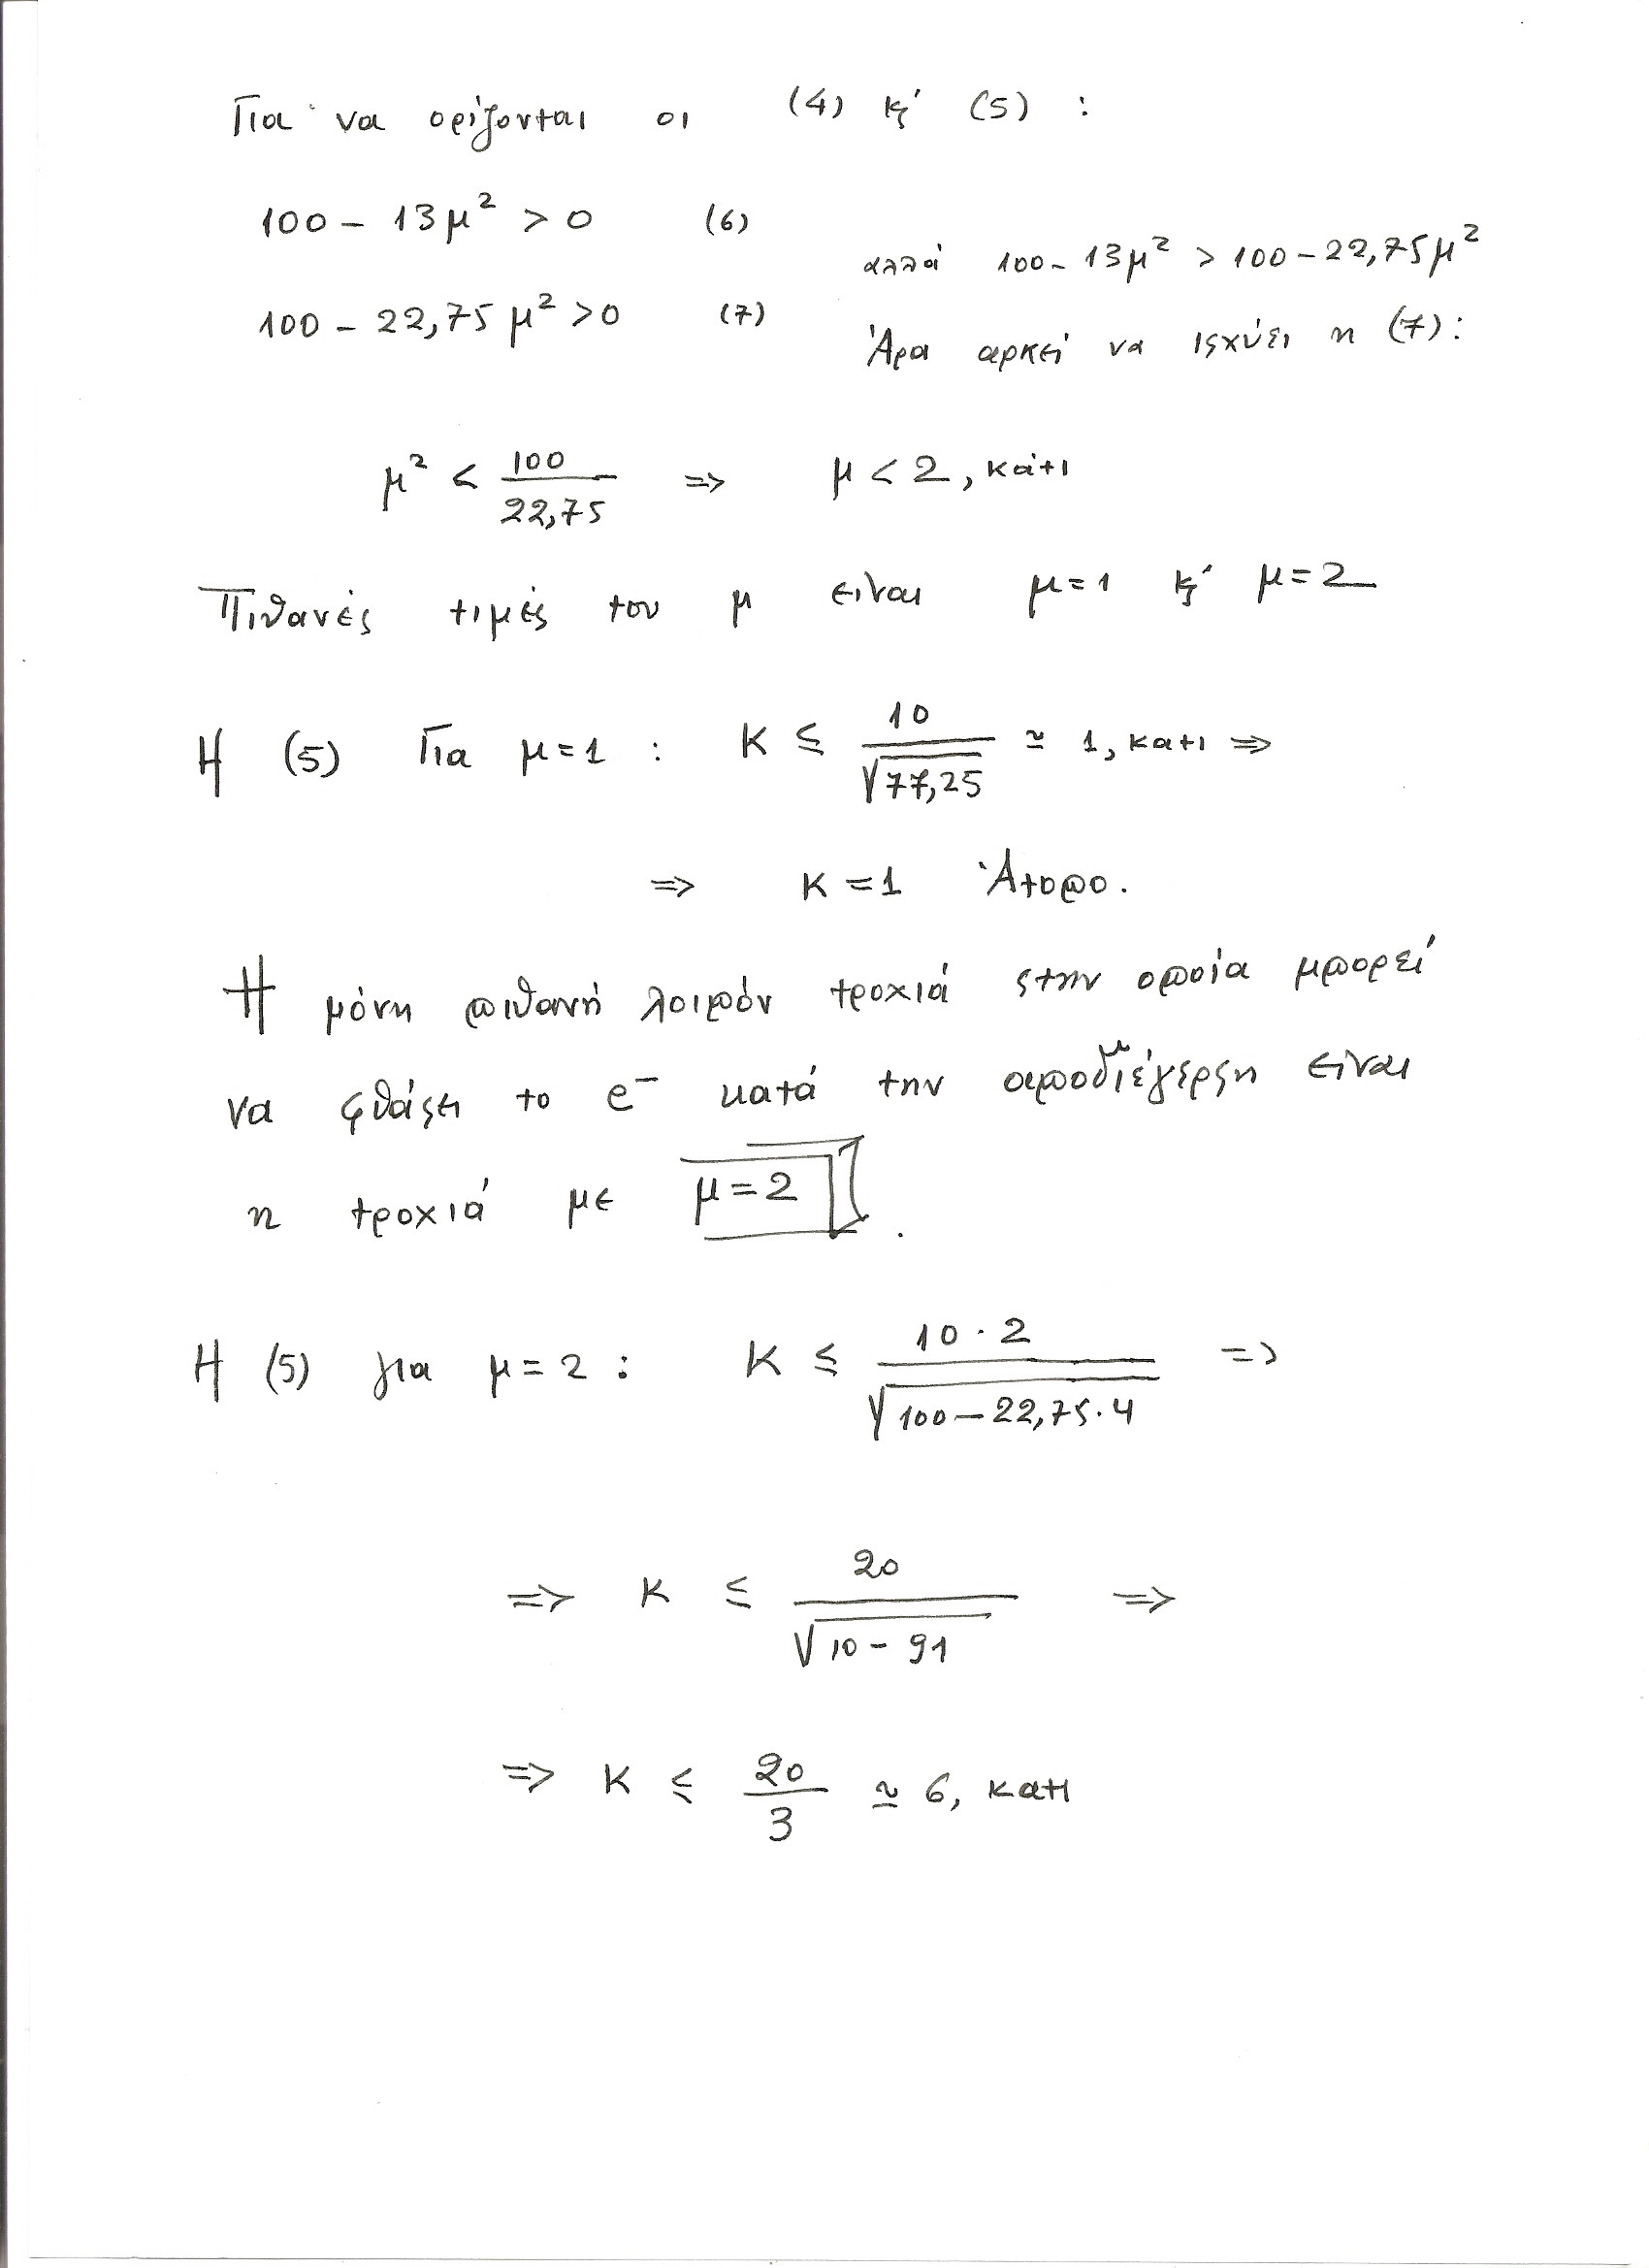 Για να ορίζονται οι (4) κ' (5) :
100 - 13μ² > 0 (6)
αλλά 100 - 13μ² > 100 - 22,75μ²
100 - 22,75 μ² > 0 (7)
Άρα αρκεί να ισχύει η (7) :
μ² < 100/22,75 => μ < 2, κάτι
Πιθανές τιμές του μ είναι μ=1 κ' μ=2
Η (5) Για μ=1 : Κ ≤ 10/√77,25 ≃ 1, κατι =>
=> Κ = 1 Άτοπο.
Η μόνη πιθανή λοιπόν τροχιά στην οποία μπορεί
να φθάσει το e⁻ κατά την αποδιέγερση είναι
η τροχιά με μ=2 .
Η (5) για μ=2 : Κ ≤ 10·2/√100-22,75·4 =>
=> Κ ≤ 20/√10-91 =>
=> Κ ≤ 20/3 ≃ 6, κατι